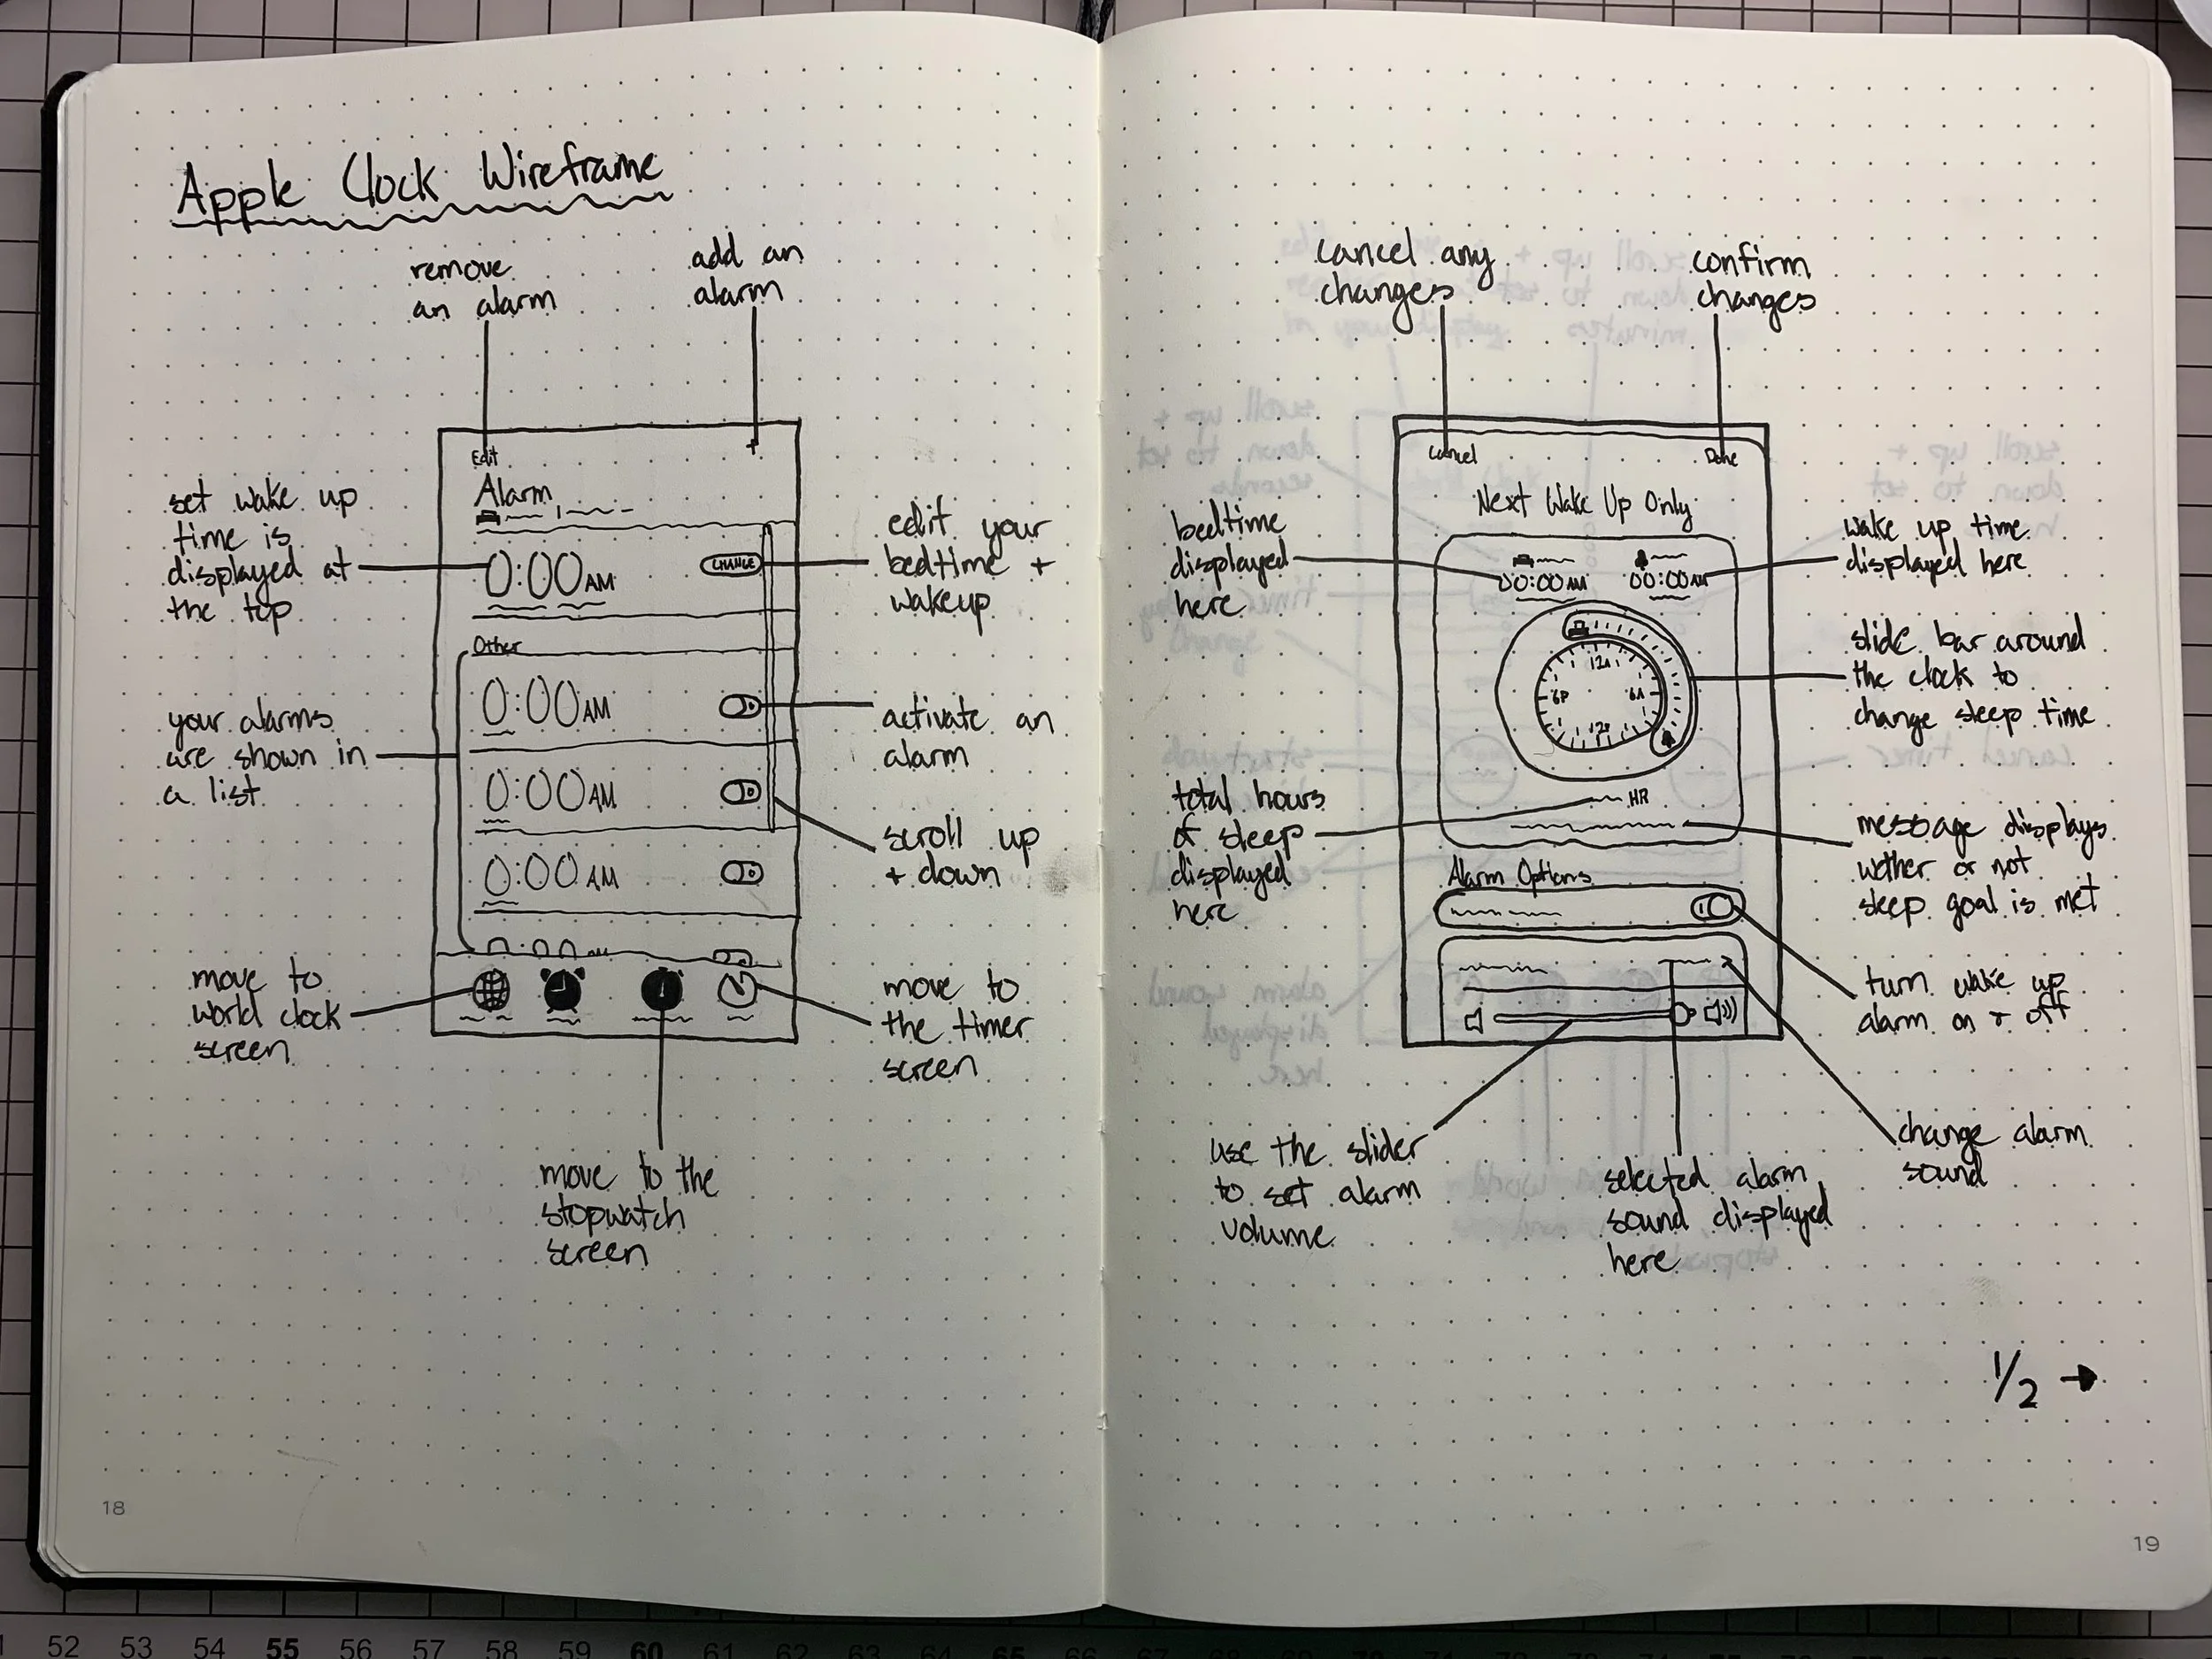 Apple Clock Wireframe
remove
an alarm
add an
alarm
set wake up
time is
displayed at
the top
your alarms
are shown in
a list
move to
world clock
screen
Edit
+
Alarm
0:00 AM
CHANGE
Other
0:00 AM
0:00 AM
0:00 AM
edit your
bedtime +
wakeup
activate an
alarm
scroll up
+ down
move to
the timer
screen
move to the
stopwatch
screen
18
cancel any
changes
confirm
changes
bedtime
displayed
here
total hours
of sleep
displayed
here
Cancel
Done
Next Wake Up Only
00:00 AM
00:00 AM
12A
6P
6A
12P
HR
Alarm Options
wake up time
displayed here
slide bar around
the clock to
change sleep time
message displays
wether or not
sleep goal is met
turn wake up
alarm on + off
change alarm
sound
use the slider
to set alarm
volume
selected alarm
sound displayed
here
1/2 →
19
52 53 54 55 56 57 58 59 60 61 62 63 64 65 66 67